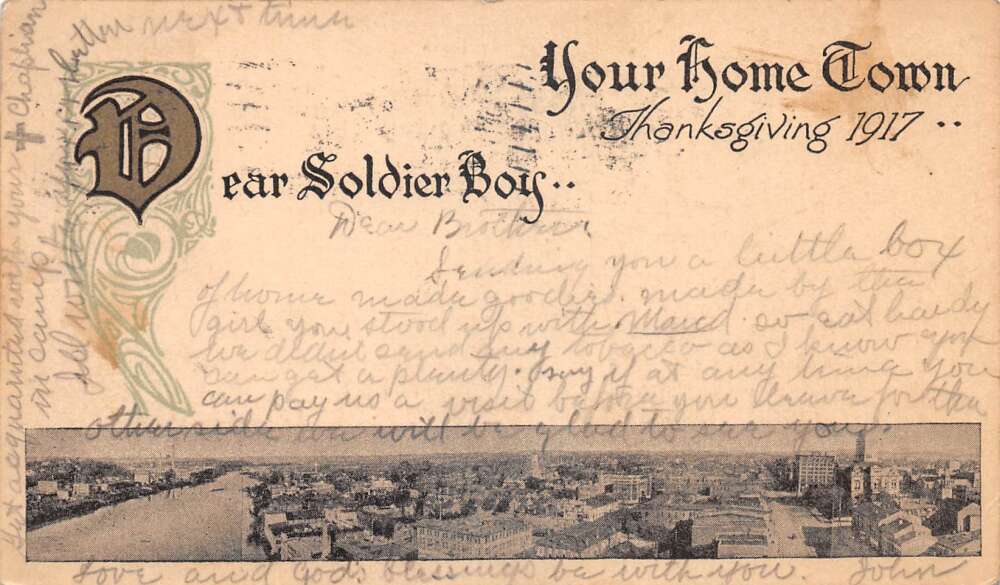 Your Home Town
Thanksgiving 1917 ..
Dear Soldier Boy..
Dear Brother
Sending you a little box
of home made goodies. made by the
girl you stood up with Maud so eat hardy
we didn't send any tobacco as I know you
can get a plenty. say if at any time you
can pay us a visit before you leave for the
other side we will be glad to see you.
Love and God's blessings be with you. John
Get acquainted with your Chaplian
in camp.
I'll write
next time